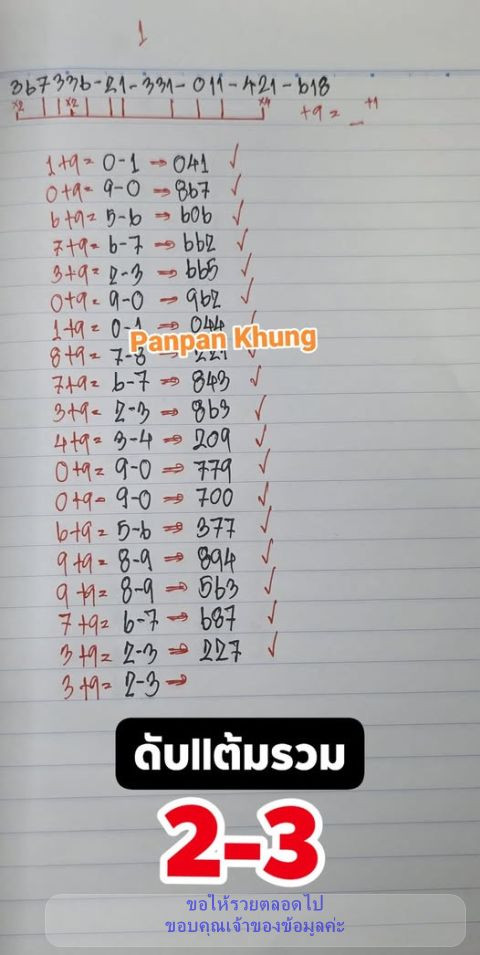 1
367336-21-331-011-421-618
x2 x2 x4 +9 = _ +1
1+9= 0-1 → 041 ✓
0+9= 9-0 → 867 ✓
6+9= 5-6 → 606 ✓
7+9= 6-7 → 662 ✓
3+9= 2-3 → 665 ✓
0+9= 9-0 → 962 ✓
1+9= 0-1 → 044 ✓
Panpan Khung
8+9= 7-8 → 221 ✓
7+9= 6-7 → 843 ✓
3+9= 2-3 → 863 ✓
4+9= 3-4 → 209 ✓
0+9= 9-0 → 779 ✓
0+9= 9-0 → 700 ✓
6+9= 5-6 → 377 ✓
9+9= 8-9 → 894 ✓
9+9= 8-9 → 563 ✓
7+9= 6-7 → 687 ✓
3+9= 2-3 → 227 ✓
3+9= 2-3 →
ดับllต้มรวม
2-3
ขอให้รวยตลอดไป
ขอบคุณเจ้าของข้อมูลค่ะ